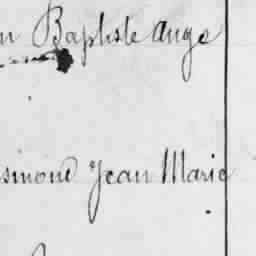 n Baptiste Ange
simond Jean Marie